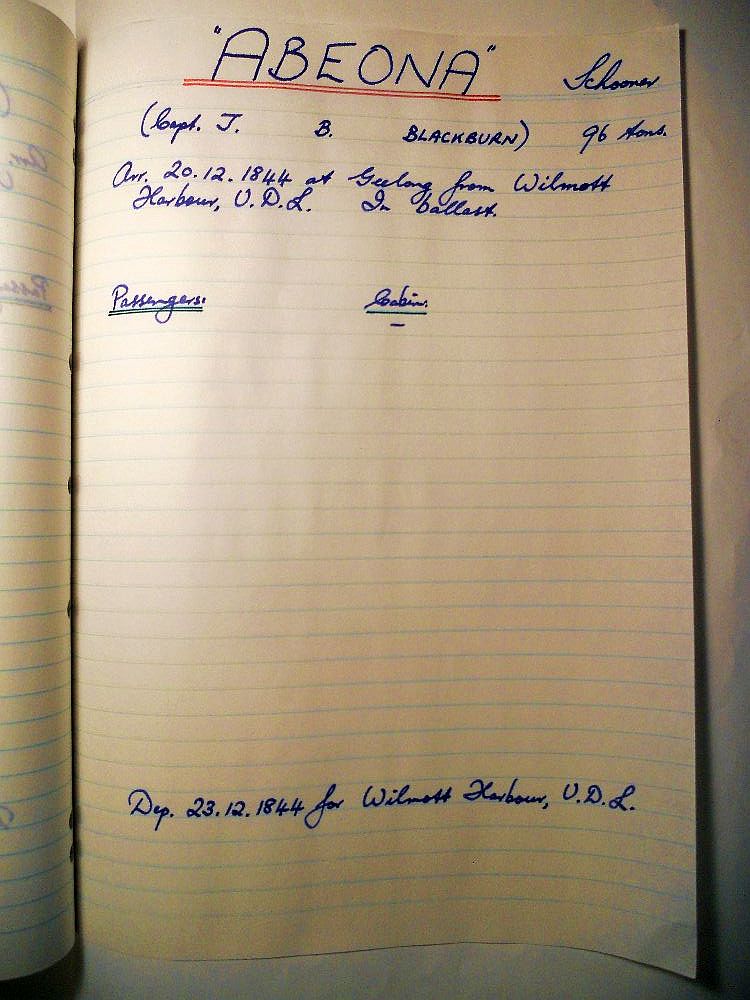 "ABEONA" Schooner
(Capt. J. B. BLACKBURN) 96 tons.
Arr. 20.12.1844 at Geelong from Wilmott
Harbour, V.D.L. In ballast.
Passengers: Cabin.
–
Dep. 23.12.1844 for Wilmott Harbour, V.D.L.